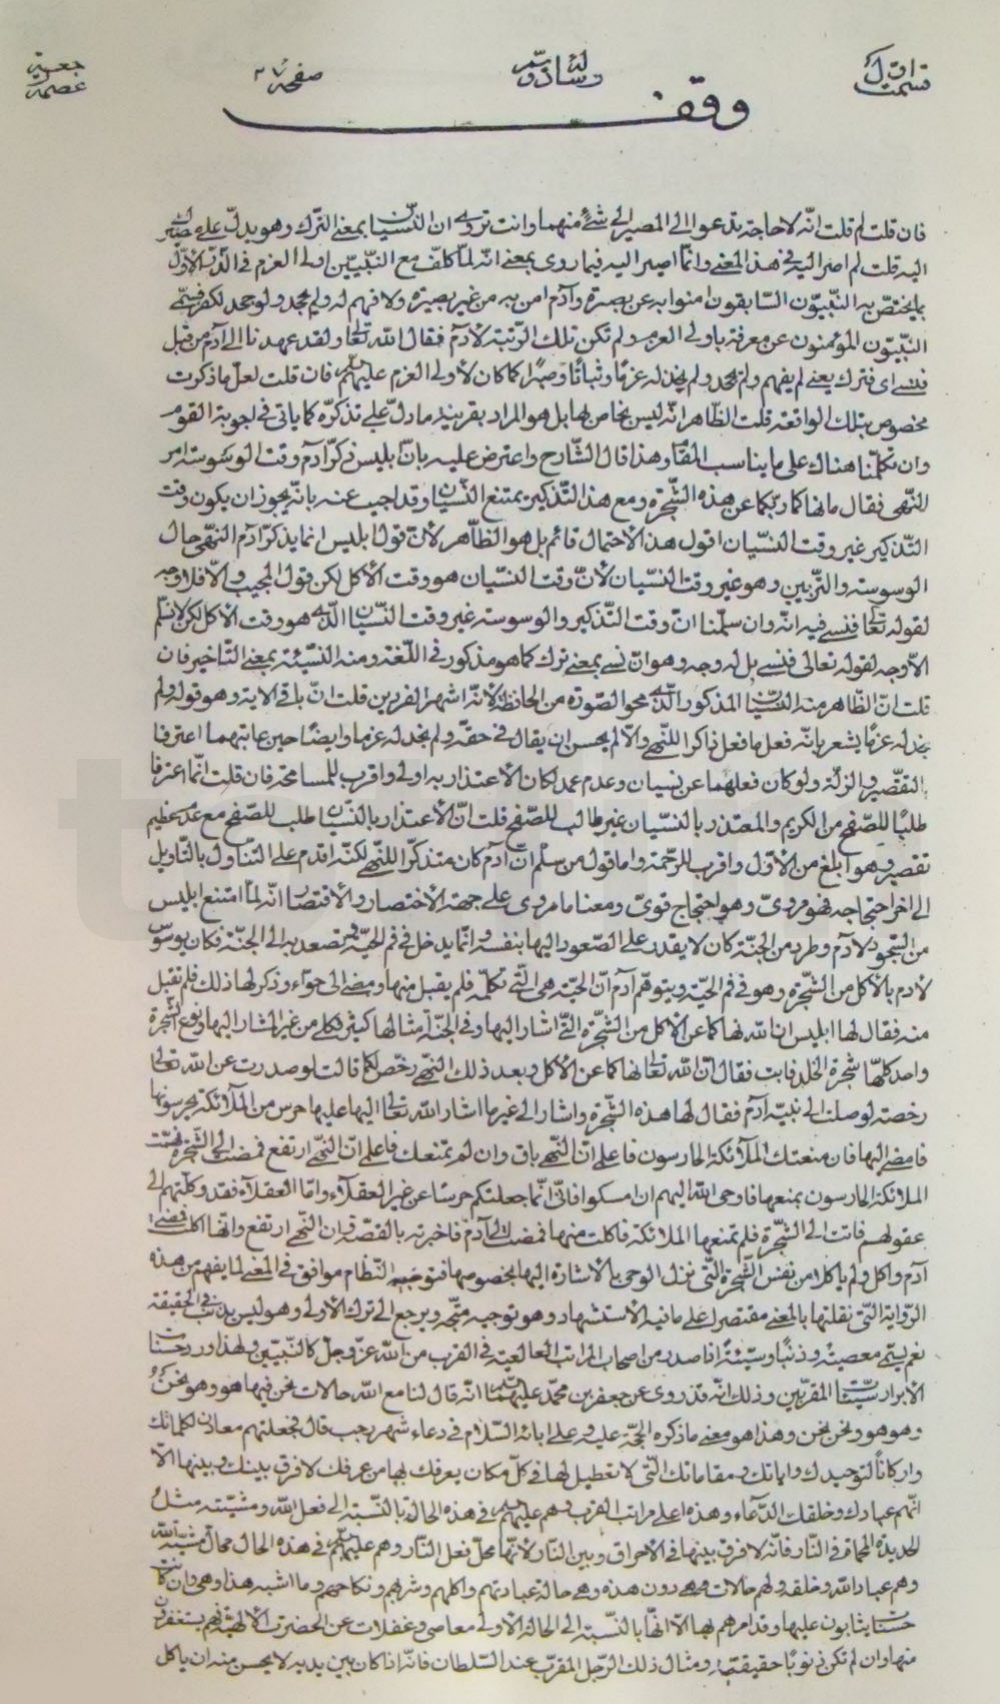 قسمت اول رساله دوم صفحه ٢٧ جعبه عصمة
وقف
فان قلت لم قلت انّه لا حاجة تدعوا الى المصير الى شئ منهما وانت تروى ان النسيان بمعنى الترك وهو يدلّ على مصيرك
اليه قلت لم اصر اليه في هذا المعنى وانّما اصير اليه فيما روى بمعنى انّه لمّا كلّف مع النبيّين اولى العزم في الذرّ الاوّل
بما يختصّ به النبيّون السّابقون امنوا به عن بصيرة وآدم امن به من غير بصيرة ولا فهم له ولم يجحد ولو جحد لكفر فسمّى
النبيّون المؤمنون عن معرفة باولى العزم ولم تكن تلك الرّتبة لآدم فقال الله تعالى ولقد عهدنا الى آدم من قبل
فنسى اى فترك يعنى لم يفهم ولم يجحد ولم يجد له عزمًا وثباتًا وصبرًا كما كان لأولى العزم عليهم السلام فان قلت لعلّ ما ذكرت
مخصوص بتلك الواقعة قلت الظّاهر انّه ليس بخاص لها بل هو المراد بقرينة ما دلّ على تذكّره كما ياتى في اجوبة القوم
وان تكلّمنا هناك على ما يناسب المقام وهذا قال الشّارح واعترض عليه بانّ ابليس ذكّر آدم وقت الوسوسة امر
النّهى فقال ما نهاكما ربّكما عن هذه الشّجرة ومع هذا التّذكير يمتنع النّسيان وقد اجيب عنه بانّه يجوز ان يكون وقت
التّذكير غير وقت النسّيان اقول هذا الاحتمال قائم بل هو الظّاهر لأنّ قول ابليس انما يذكّر آدم النّهى حال
الوسوسة والتّزيين وهو غير وقت النّسيان لأنّ وقت النسّيان هو وقت الأكل لكن قول المجيب والّا فلا وجه
لقوله تعالى فنسى فيه انّه وان سلّمنا انّ وقت التّذكير والوسوسة غير وقت النّسيان الّذى هو وقت الاكل لكن لا نسلّم
الّا وجه لقوله تعالى فنسى بل له وجه وهو انّ نسى بمعنى ترك كما هو مذكور في اللّغة ومنه النّسيئة بمعنى التّاخير فان
قلت انّ الظّاهر منه النّسيان المذكور الّذى محو الصّورة من الحافظة لأنّه اشهر الفردين قلت انّ باقى الاية وهو قوله ولم
نجد له عزمًا يشعر بانّه فعل ما فعل ذاكرا للنّهى والّا لم يحسن ان يقال في حقّه ولم نجد له عزما وايضًا حين عاتبهما اعترفا
بالتقصير والزلّة ولو كان فعلهما عن نسيان وعدم عمد لكان الأعتذار به اولى واقرب للمسامحة فان قلت انّما اعترفا
طلبًا للصّفح من الكريم والمعتذر بالنسّيان غير طالب للصّفح قلت انّ الأعتذار بالنّسيان طلب للصّفح مع عدم عظيم
تقصير وهو ابلغ من الأوّل واقرب للرّحمة واما قول من سلّم انّ آدم كان متذكّرًا للنّهى لكنّه اقدم على التّناول بالتّاويل
الى اخر احتجاجه فهو مروىّ وهو احتجاج قوىّ ومعنا ما مروى على جهة الأختصار والأقتصار انّه لمّا امتنع ابليس
من السّجود لآدم وطرد من الجنّة كان لا يقدر على الصّعود اليها بنفسه وانّما يدخل في فم الحيّة فتصعد به الى الجنّة فكان يوسوس
لآدم بالأكل من الشّجرة وهو في فم الحيّة ويتوهّم آدم انّ الحيّة هى الّتى تكلّمه فلم يقبل منها ومضى الى حوّاء وذكر لها ذلك فلم تقبل
منه فقال لها ابليس ان الله نهاكما عن الأكل من الشّجرة الّتى اشار اليها وفي الجنّة امثالها كثير فكلى من غير المشار اليها ونوع الشّجرة
واحد كلّها شجرة الخلد فابت فقال انّ الله تعالى نهاكما عن الأكل وبعد ذلك النّهى رخّص لكما قالت لو صدرت عن الله تعالى
رخصة لوصلت الى نبيّه آدم فقال لها هذه الشّجرة واشار الى غير ما اشار الله تعالى اليها عليها حرس من الملآئكة يحرسونها
فامضى اليها فان منعتك الملآئكة الحارسون فاعلمى انّ النّهى باق وان لم تمنعك فاعلمى انّ النّهى ارتفع فمضت الى الشّجرة فهمّت
الملائكة الحارسون بمنعها فاوحى الله اليهم ان امسكوا فانّى انّما جعلتكم حرسًا عن غير العقلآء وامّا العقلآء فقد وكلتهم الى
عقولهم فاتت الى الشّجرة فلم تمنعها الملائكة فاكلت منها فمضت الى آدم فاخبرته بالقصّة وان النّهى ارتفع وانّها اكلت فمضى
آدم واكل ولم ياكلا من نفس الشّجرة الّتى نزل الوحى بالأشارة اليها بخصوصها فتوجيه النّظام موافق في المعنى لما يفهم من هذه
الرّواية الّتى نقلتها بالمعنى مقتصرا على ما فيه الأستشهاد وهو توجيه متّجه ويرجع الى ترك الأولى وهو ليس بذنب في الحقيقة
نعم يسمّى معصية وذنبًا وسيّئة اذا صدر من اصحاب المراتب العالية في القرب من الله عزّ وجلّ كالنّبيّين ولهذا ورد حسنات
الأبرار سيّئات المقرّبين وذلك انّه قد روى عن جعفر بن محمّد عليهما السلام انّه قال لنا مع الله حالات نحن فيها هو وهو نحن
وهو هو ونحن نحن وهذا هو معنى ما ذكره الحجّة عليه وعلى ابائه السّلام في دعاء شهر رجب قال فجعلتهم معادن لكلماتك
واركانًا لتوحيدك واياتك ومقاماتك الّتى لا تعطيل لها في كلّ مكان يعرفك بها من عرفك لا فرق بينك وبينها الّا
انّهم عبادك وخلقك الدّعاء وهذه اعلى مراتب القرب وهم عليهم السلام في هذه الحالة بالنّسبة الى فعل الله ومشيّته مثل
الحديدة المحماة في النّار فانّه لا فرق بينها في الأحراق وبين النّار لأنّها محلّ فعل النّار وهم عليهم السلام في هذه الحال محالّ مشيّة الله
وهم عباد الله وخلقه ولهم حالات وهى دون هذه وهى حالة عبادتهم واكلهم وشربهم ونكاحهم وما اشبه هذا وهى وان كانت
حسنات يثابون عليها وقد امرهم بها الّا انّها بالنّسبة الى الحالة الأولى معاصى وغفلات عن الحضرة الألهيّة فهم يستغفرون
منها وان لم تكن ذنوبًا حقيقة ومثال ذلك الرّجل المقرّب عند السّلطان فانّه اذا كان بين يديه لا يحسن منه ان ياكل